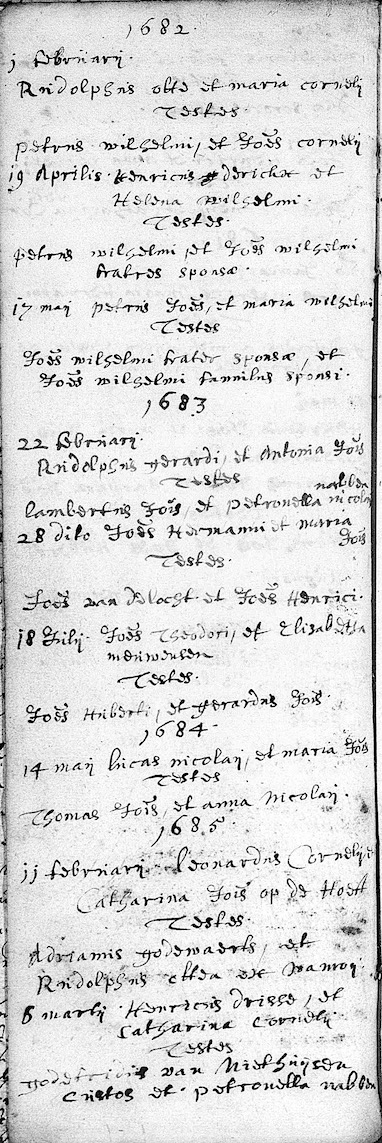 1682.
1 februarij.
Rudolphus otte et maria cornelij
Testes
petrus wilhelmi, et Joēs cornelij
19 Aprilis. Henricus derickx et
Helena wilhelmi.
Testes.
petrus wilhelmi et Joēs wilhelmi
fratres sponsæ.
17 maij petrus Joēs, et maria wilhelmi
Testes
Joēs wilhelmi frater sponsæ, et
Joēs wilhelmi famulus sponsi.
1683
22 februarij.
Rudolphus gerardi, et Antonia Joīs
Testes
lambertus Joīs, et petronella nabben nicolaij
28 dito Joēs Hermanni et maria Joīs
Testes.
Joēs van et Joēs Henrici.
18 Julij. Joēs Theodori, et Elisabetha
meuwensen
Testes.
Joēs Huberti, et gerardus Joīs.
1684.
14 maij lucas nicolaij, et maria Joīs
Testes
Thomas Joīs, et anna Nicolaij.
1685.
11 februarij. leonardus Cornelij, et
Catharina Joīs op de Hoeff
Testes.
Adrianus godewaerts, et
Rudolphus ex wanroij.
6 martij. Henricus drisse, et
Catharina Cornelij
Testes
godefridus van Niethuijsen
Custos et petronella nabben